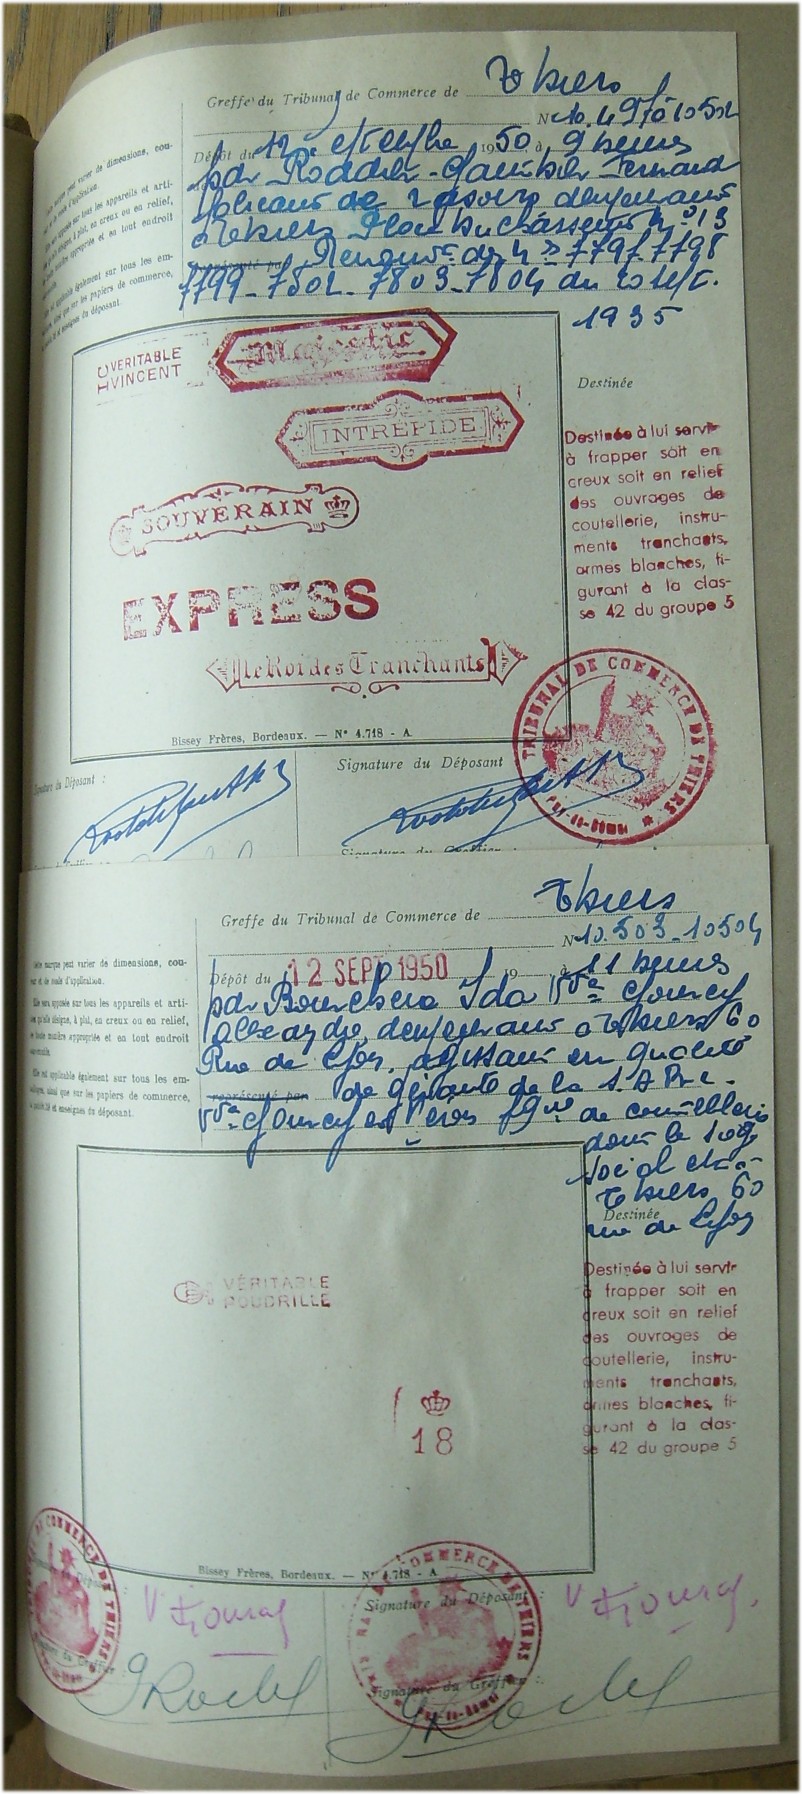 Greffe du Tribunal de Commerce de Thiers
N° 10.497 à 10502
Dépôt du 12 septembre 1950 à 9 heures
par
fabricant de rasoirs demeurant
à Thiers Place Duchasseint n° 13
Renouv. des n°s 7797-7798
7799-7802-7803-7804 du 20 sept.
1935
marque peut varier de dimensions, cou-
d'application.
sur tous les appareils et arti-
à plat, en creux ou en relief,
appropriée et en tout endroit
applicable également sur tous les em-
que sur les papiers de commerce,
et enseignes du déposant.
VERITABLE
VINCENT
Majestic
INTREPIDE
SOUVERAIN
EXPRESS
Le Roi des Tranchants
Destinée
Destinée à lui servir
à frapper soit en
creux soit en relief
des ouvrages de
coutellerie, instru-
ments tranchants,
armes blanches, fi-
gurant à la clas-
se 42 du groupe 5
TRIBUNAL DE COMMERCE DE THIERS
PUY-DE-DÔME
Bissey Frères, Bordeaux. — N° 4.718 - A
Signature du Déposant :
Signature du Déposant
Signature du Greffier :
Greffe du Tribunal de Commerce de Thiers
N° 10.503-10504
Dépôt du 12 SEPT 1950 19 à 11 heures
par Ida Vve
demeurant à Thiers 60
Rue de Lyon, agissant en qualité
représenté par de gérante de la S.A.R.L.
Vve et fils de coutellerie
dont le siège
social est à
Thiers 60
rue de Lyon
Cette marque peut varier de dimensions, cou-
leur et de mode d'application.
Elle sera apposée sur tous les appareils et arti-
cles qu'elle désigne, à plat, en creux ou en relief,
de toute manière appropriée et en tout endroit
Elle est applicable également sur tous les em-
ballages, ainsi que sur les papiers de commerce,
publicité et enseignes du déposant.
VÉRITABLE
POUDRILLE
18
Destinée
Destinée à lui servir
à frapper soit en
creux soit en relief
des ouvrages de
coutellerie, instru-
ments tranchants,
armes blanches, fi-
gurant à la clas-
se 42 du groupe 5
Bissey Frères, Bordeaux. — N° 4.718 - A
Signature du Déposant :
Signature du Greffier :
Signature du Déposant :
Signature du Greffier :
COMMERCE DE THIERS
COMMERCE DE THIERS